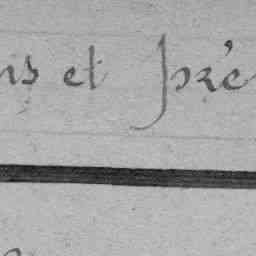 ns et pré